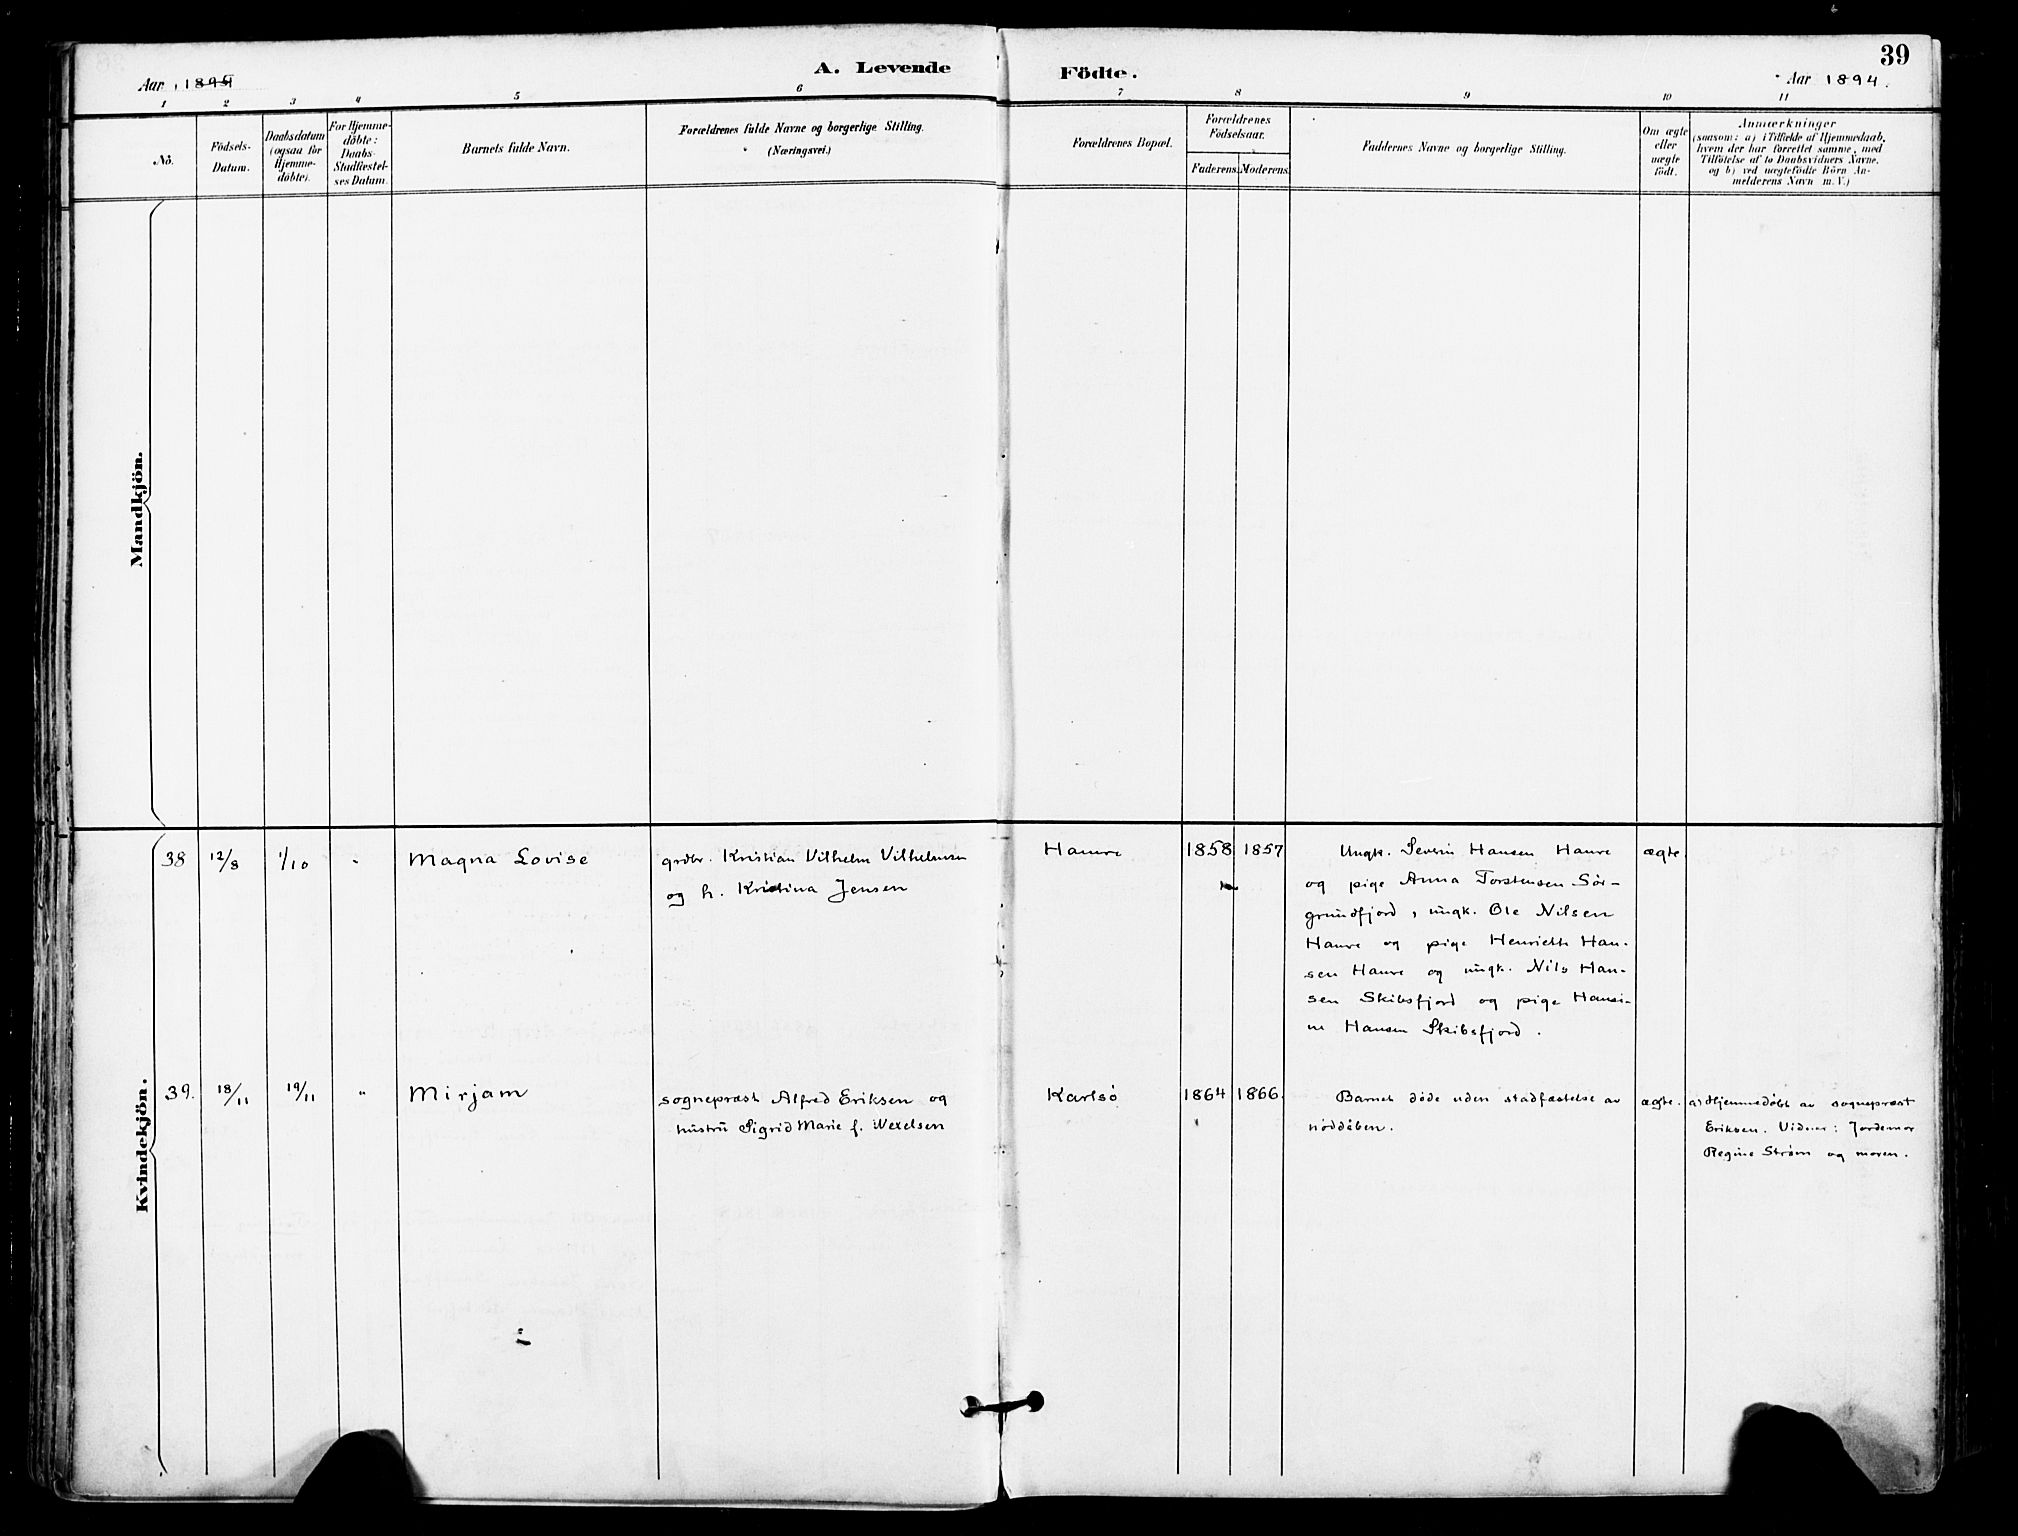 39
A. Levende Födte.
Aar 1895
Aar 1894.
1 2 3 4 5 6 7 8 9 10 11
No.
Födsels-
Datum.
Daabsdatum
(ogsaa for
Hjemme-
døbte).
For Hjemme-
døbte:
Daabs-
Stadfæstel-
ses Datum.
Barnets fulde Navn.
Forældrenes fulde Navne og borgerlige Stilling.
(Næringsvei.)
Forældrenes Bopæl.
Forældrenes
Födselsaar.
Faderens. Moderens.
Faddernes Navne og borgerlige Stilling.
Om ægte
eller
uægte
födt.
Anmærkninger
(saasom: a) i Tilfælde af Hjemmedaab,
hvem der har forrettet samme, med
Tilföielse af to Daabsvidners Navne.
og b) ved uægtefödte Börn An-
melderens Navn m. V.)
Mandkjön.
Kvindekjön.
38 12/8 1/10 " Magna Lovise
grdbr. Kristian Vilhelm Vilhelmsen
og h. Kristina Jensen
Hamre 1858 1857
Ungk. Severin Hansen Hamre
og pige Anna Torstensen Sör-
grundfjord, ungk. Ole Nilsen
Hamre og pige Henriette Han-
sen Hamre og ungk. Nils Han-
sen Skibsfjord og pige Hansi-
ne Hansen Skibsfjord.
ægte.
39. 18/11 19/11 " Mirjam
sognepræst Alfred Eriksen og
hustru Sigrid Marie f. Nexelsen
Karlsö 1864 1866.
Barnet døde uden stadfæstelse av
nöddåben.
ægte.
a) Hjemmedøbt av sognepræst
Eriksen. Vidner: Jordemor
Regine Strøm og moren.